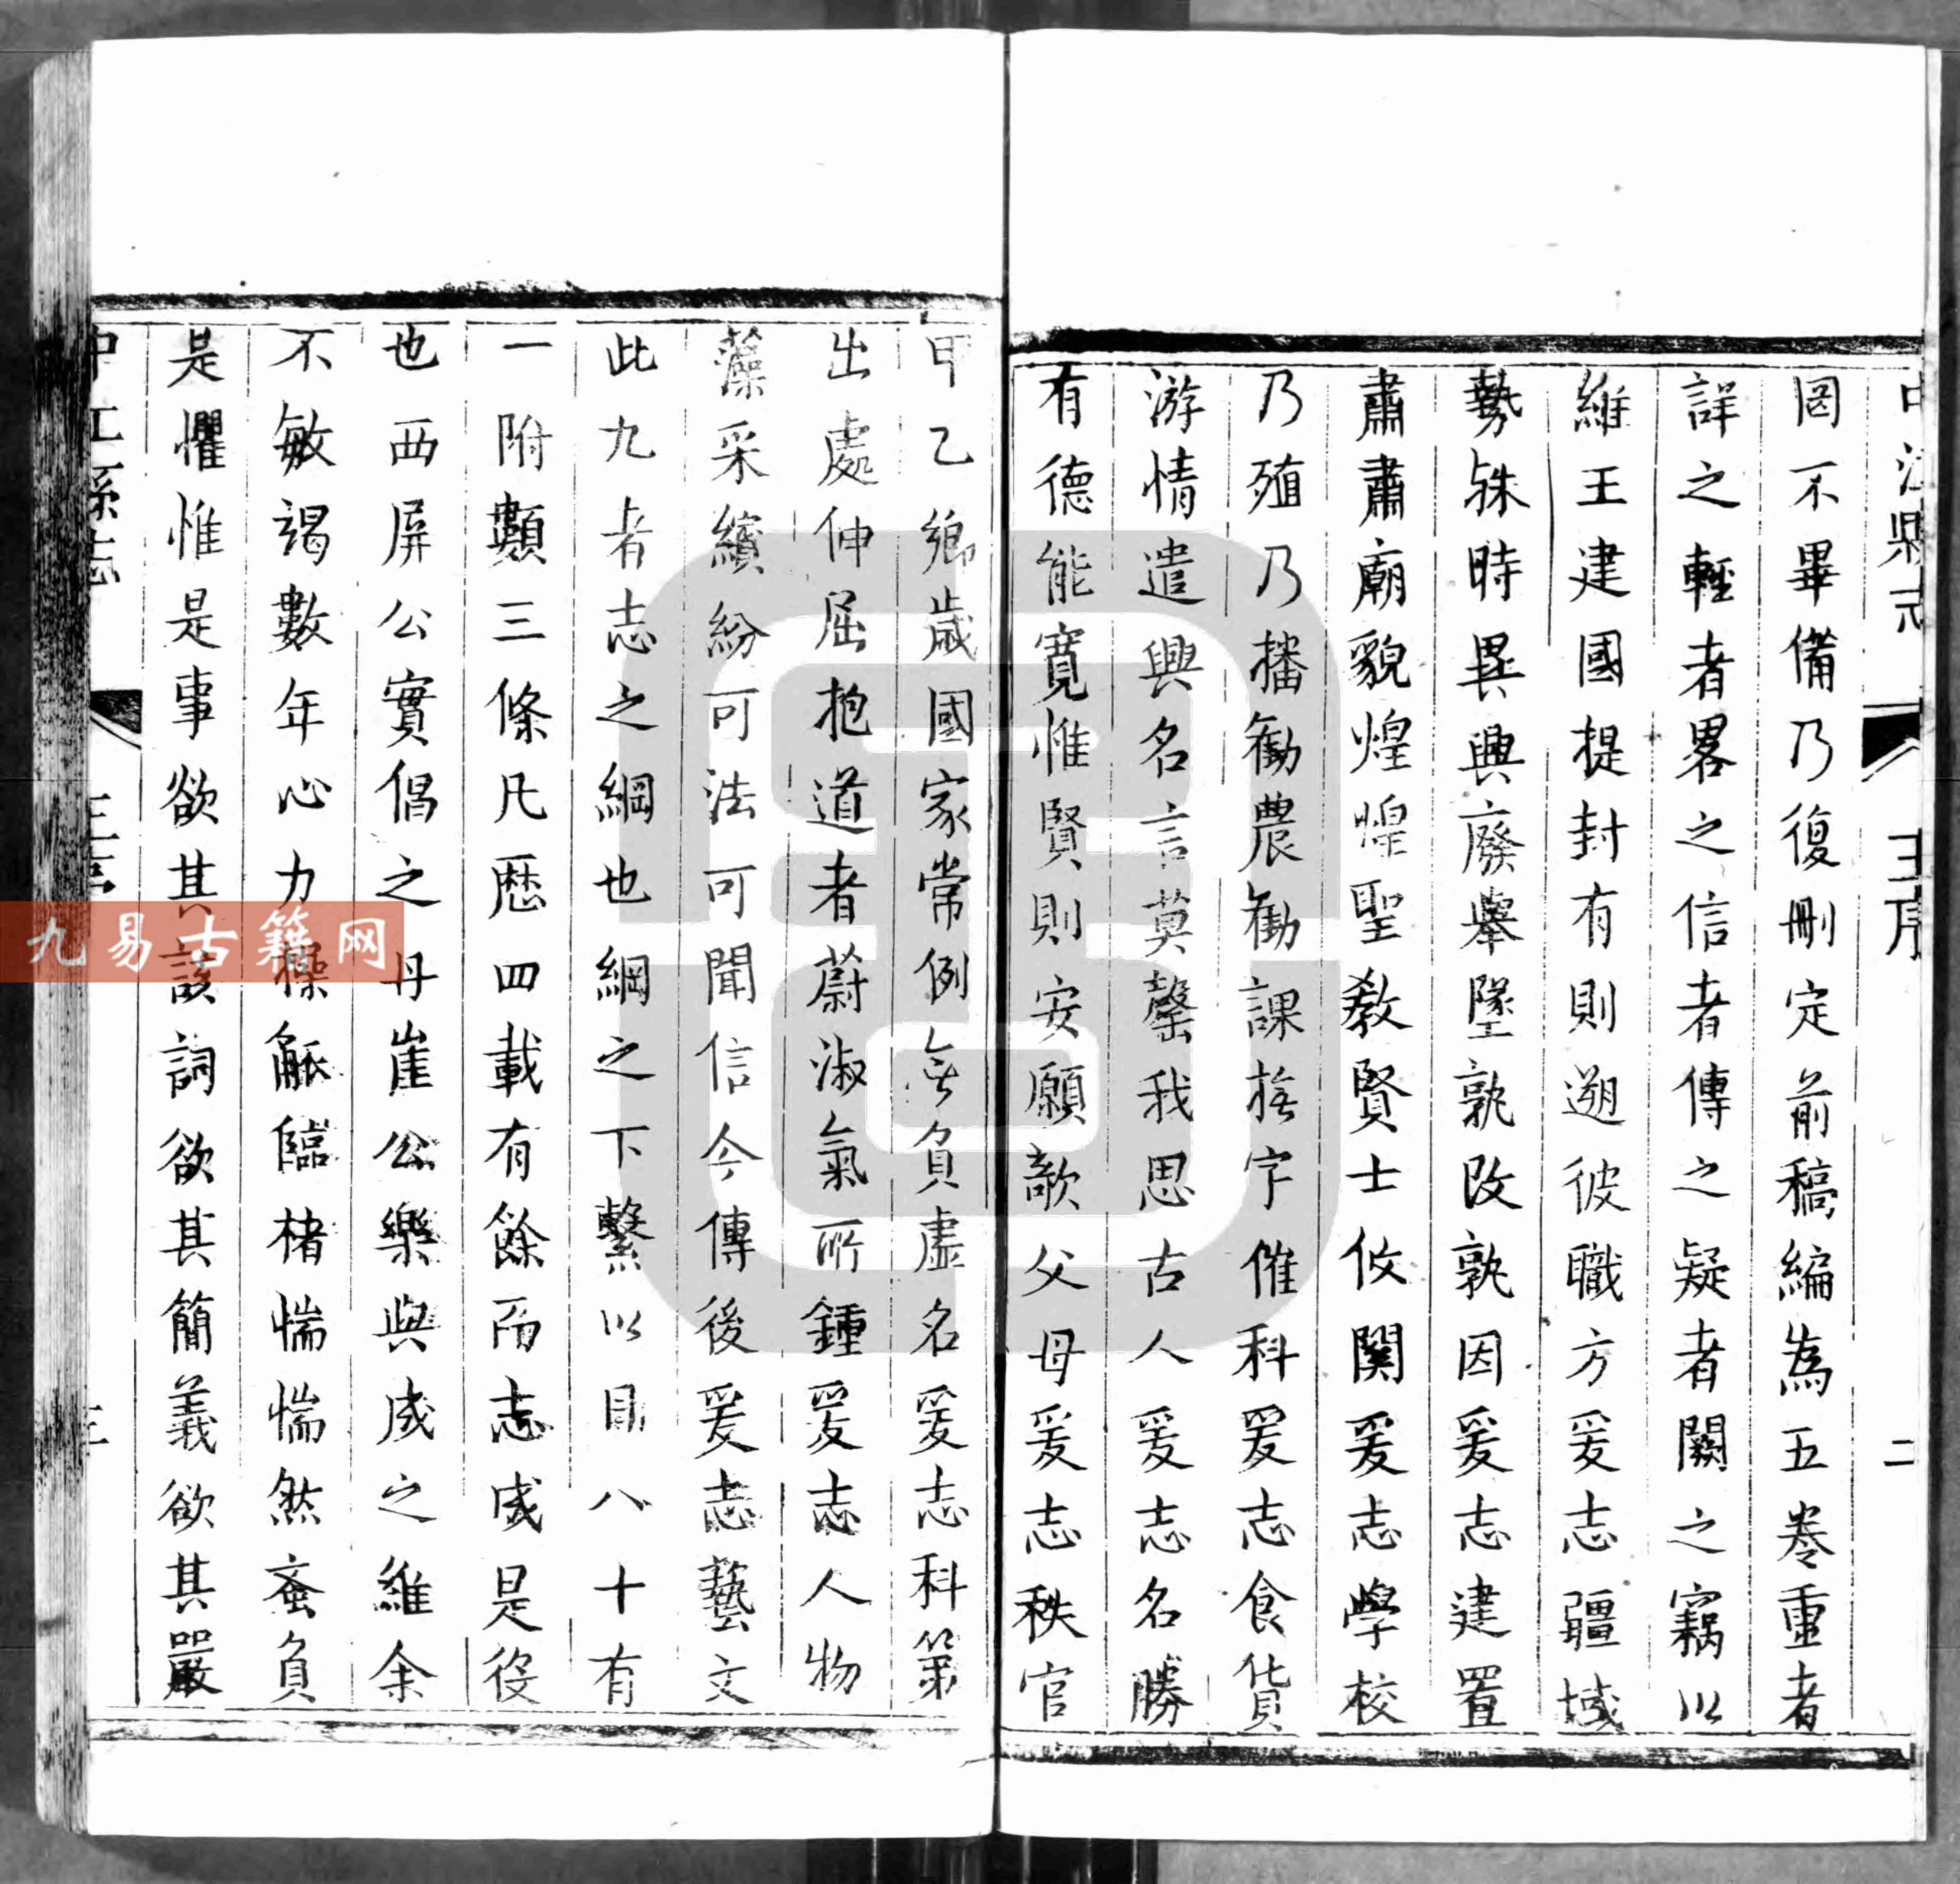 中江縣志 王序 二
罔不畢備乃復刪定前稿編為五卷重者
詳之輕者畧之信者傳之疑者闕之竊以
維王建國提封有則遡彼職方爰志疆域
勢殊時異興廢舉墜孰改孰因爰志建置
肅肅廟貌煌煌聖教賢士攸關爰志學校
乃殖乃播勸農勸課撫字催科爰志食貨
游情遣興名言莫罄我思古人爰志名勝
有德能寬惟賢則安願歌父母爰志秩官
甲乙鄉歲國家常例無負虛名爰志科第
出處伸屈抱道者蔚淑氣所鍾爰志人物
藻采繽紛可法可聞信今傳後爰志藝文
此九者志之綱也綱之下繫以目八十有
一附類三條凡歷四載有餘而志成是役
也西屏公實倡之丹崖公樂與成之維余
不敏竭數年心力操觚臨楮惴惴然蚉負
是懼惟是事欲其該詞欲其簡義欲其嚴
中江縣志 王序 三
九易古籍网